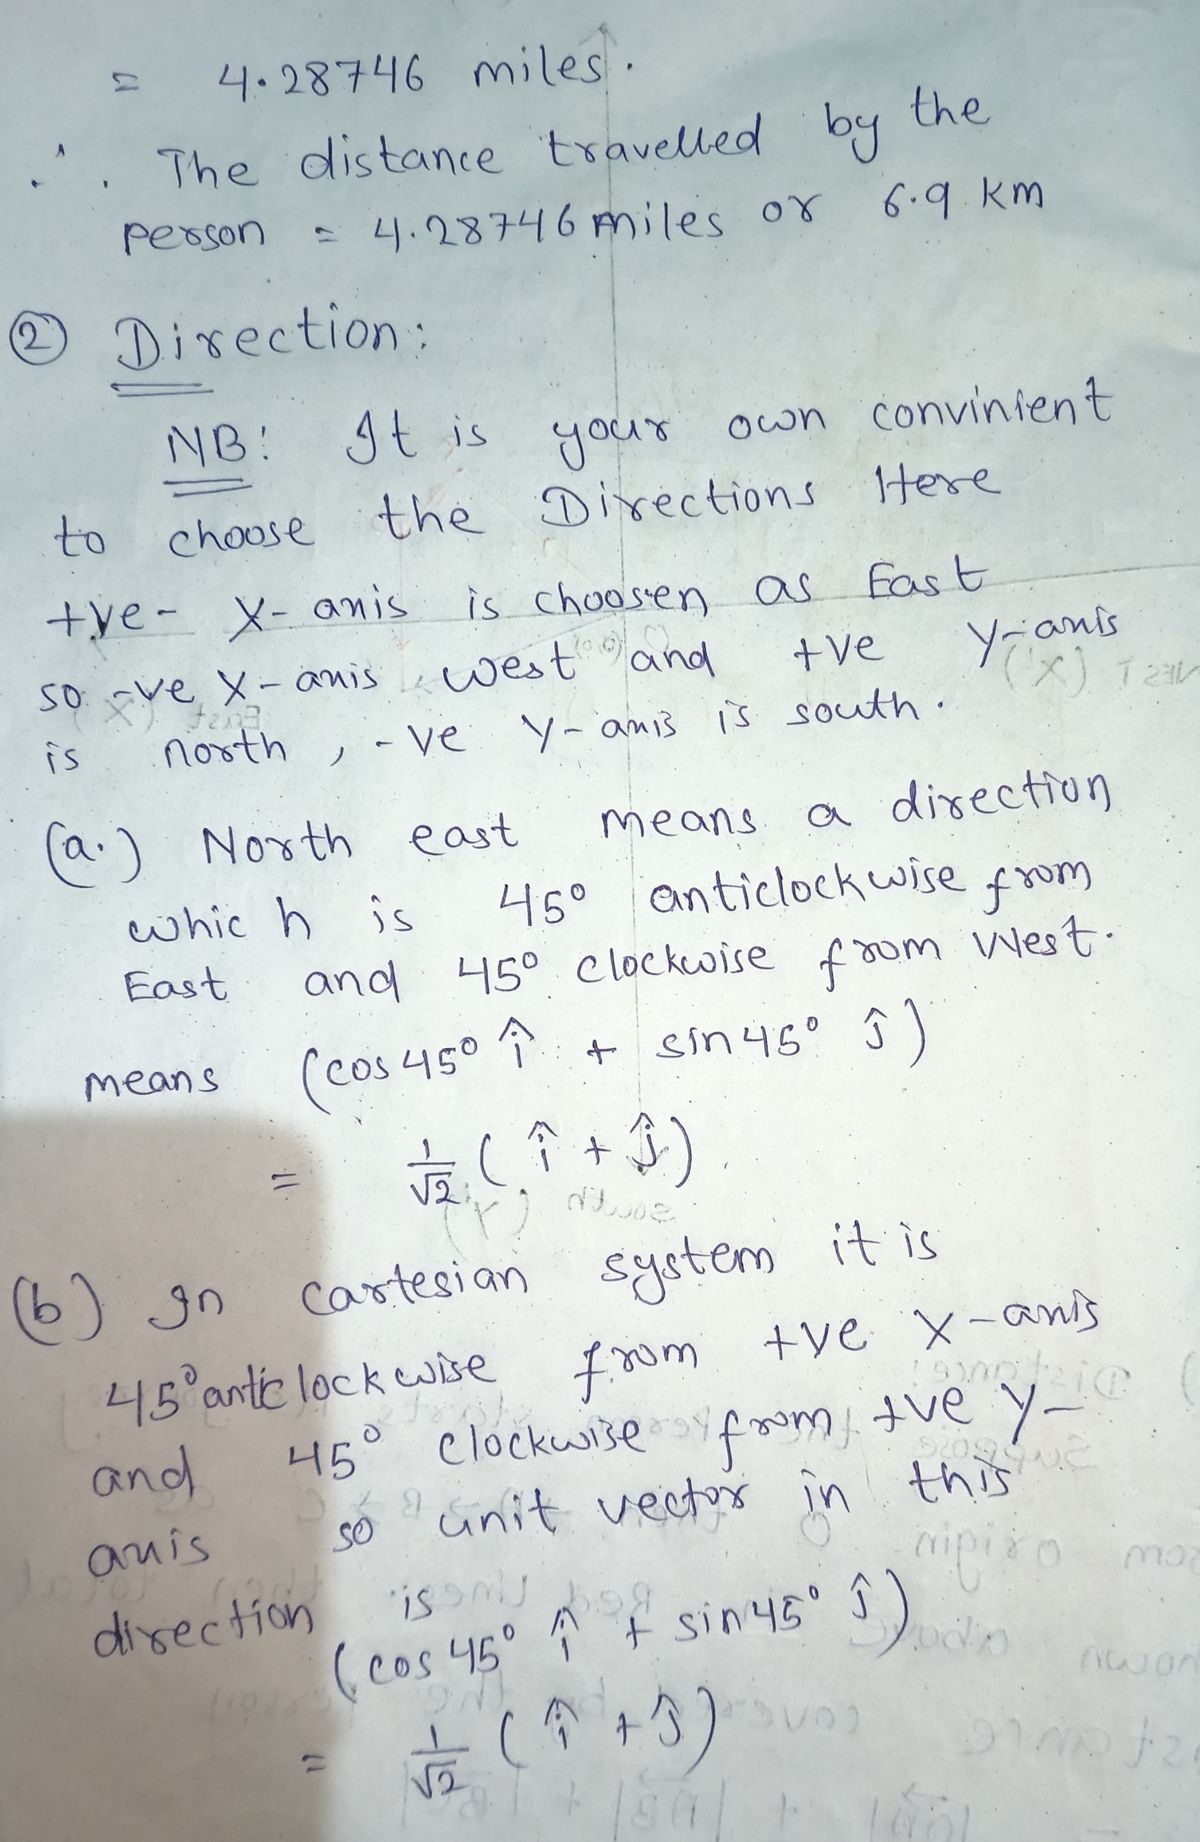 = 4.28746 miles.
∴ The distance travelled by the
person = 4.28746 miles or 6.9 km
② Direction:
NB: It is your own convinient
to choose the Directions Here
+ve- X-axis is choosen as East
so -ve X-axis west and +ve Y-axis
is north, -ve Y-axis is south.
(a.) North east means a direction
which is 45° anticlockwise from
East and 45° clockwise from West.
means (cos 45° î + sin 45° ĵ)
= 1/√2 ( î + ĵ )
(b) In cartesian system it is
45° anticlockwise from +ve X-axis
and 45° clockwise from +ve Y-
axis so unit vector in this
direction is
(cos 45° î + sin 45° ĵ)
= 1/√2 ( î + ĵ )